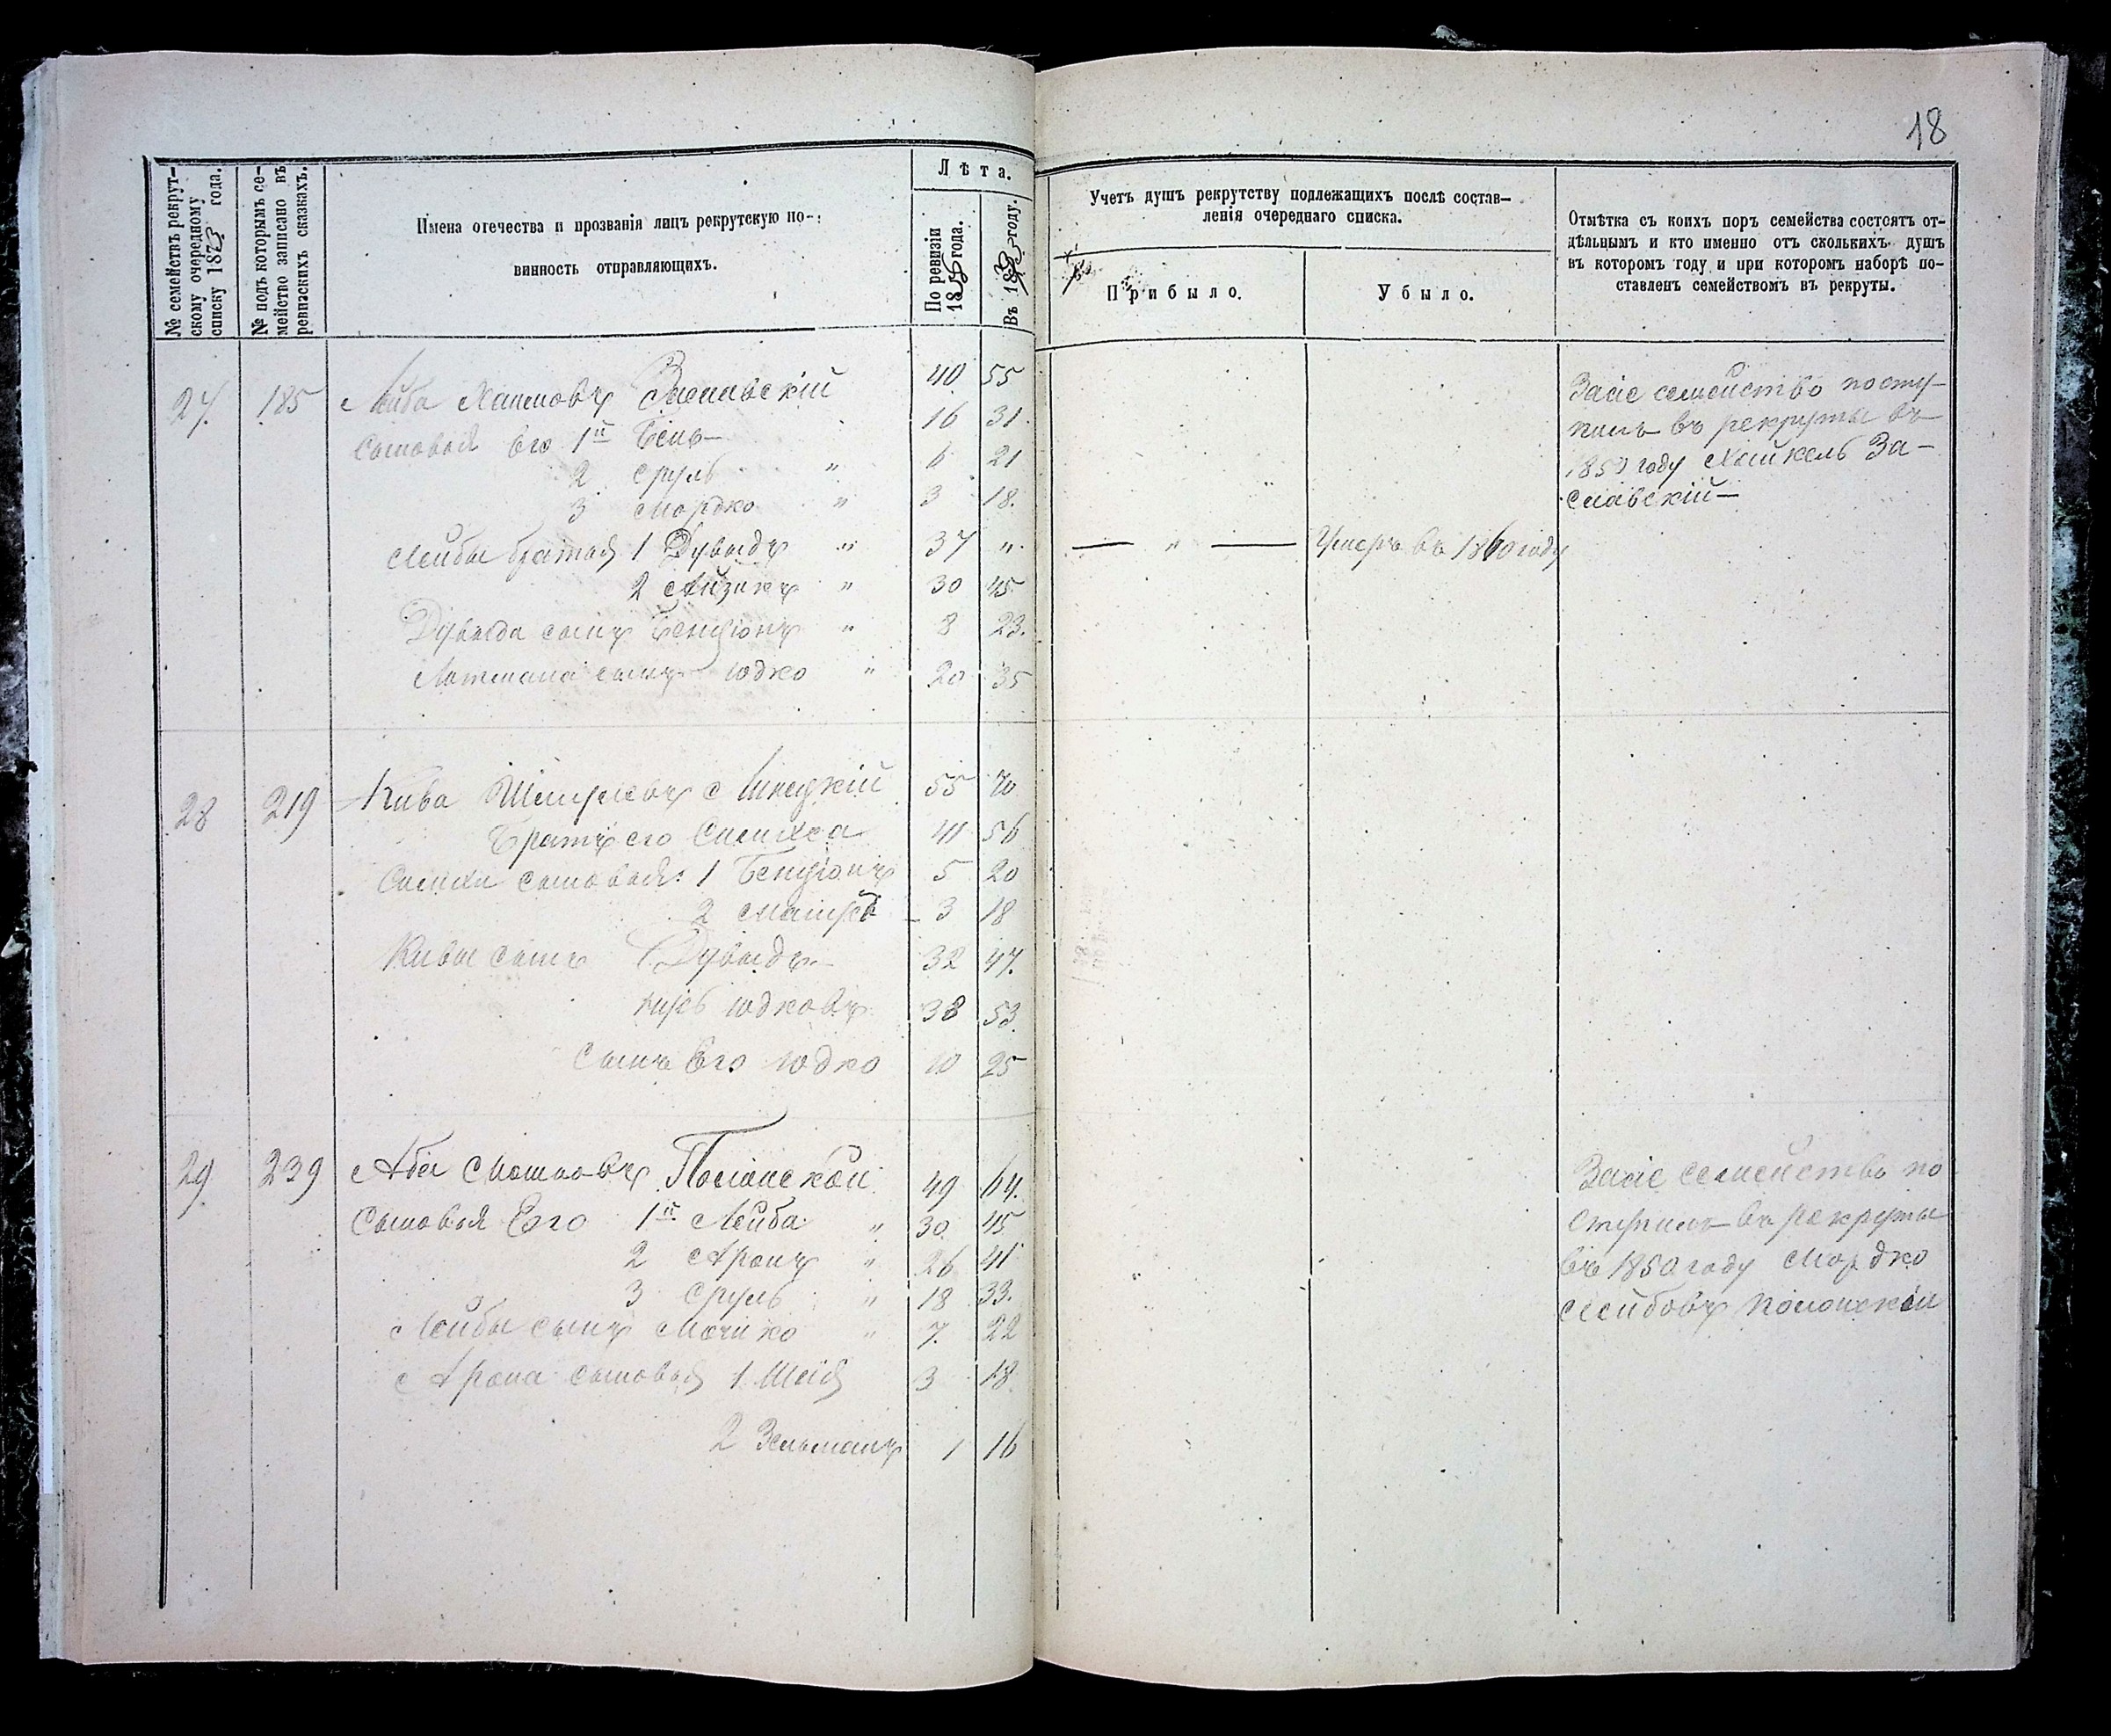 18
№ семействъ рекрут-
скому очередному
списку 1873 года.
№ подъ которымъ се-
мейство записано въ
ревизскихъ сказкахъ.
Имена отечества и прозванія лицъ рекрутскую по-
винность отправляющихъ.
Лѣта.
По ревизіи
1858 года.
Въ 1873 году.
Учетъ душъ рекрутству подлежащихъ послѣ состав-
ленія очереднаго списка.
Прибыло.
Убыло.
Отмѣтка съ коихъ поръ семейства состоятъ от-
дѣльнымъ и кто именно отъ сколькихъ душъ
въ которомъ году и при которомъ наборѣ по-
ставленъ семействомъ въ рекруты.
27. 185 Лейба Хаимовъ Заславскій 40 55
Сыновья Его 1й Бень 16 31.
2 Сруль " 6 21
3 Мордко " 3 18.
Лейбы братья 1 Дувыдъ " 37 " — " — Умеръ въ 1860 году
2 Айзикъ " 30 45
Дувыда сынъ Бенціонъ " 8 23.
сынъ Юдко " 20 35
Засіе семейство посту-
пилъ въ рекруты въ
году Хайкель За-
славскій
28 219 Кива 55 70
Братъ его Симха 41 56
Симхи сыновья: 1 Бенціонъ 5 20
2 3 18
Кивы сынъ Дувыдъ 32 47.
Юдковъ 38 53.
Сынъ Его Юдко 10 25
29 239 Аба Мошковъ Полонской 49 64.
Сыновья Его 1й Лейба " 30. 45
2 Аронъ " 26 41
3 Сруль " 18 33.
Лейбы сынъ Мошко " 7. 22
Арона сыновья 1 Шая 3 18
2 Зельманъ 1 16
Засіе семейство по
ступилъ въ рекруты
въ 1850 году Мордко
Лейбовъ Полонскій